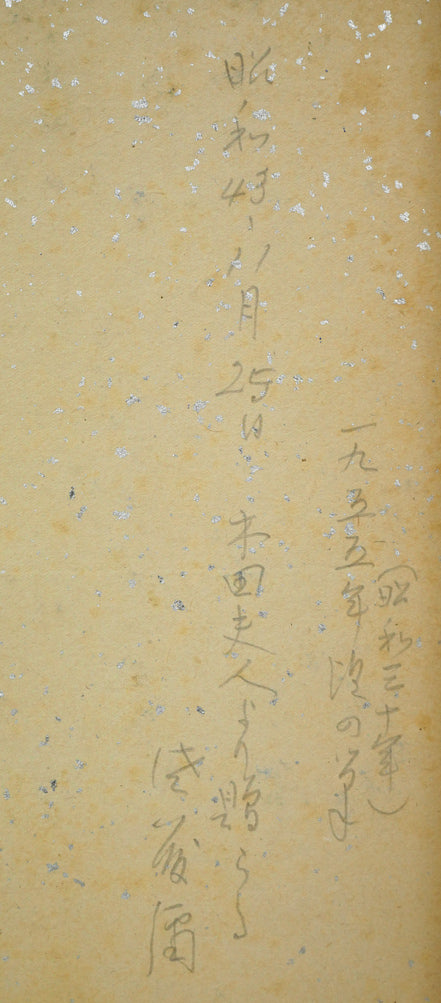 (昭和三十年)
一九五五年頃の筆
昭和43、11月25日 木田夫人より贈らる